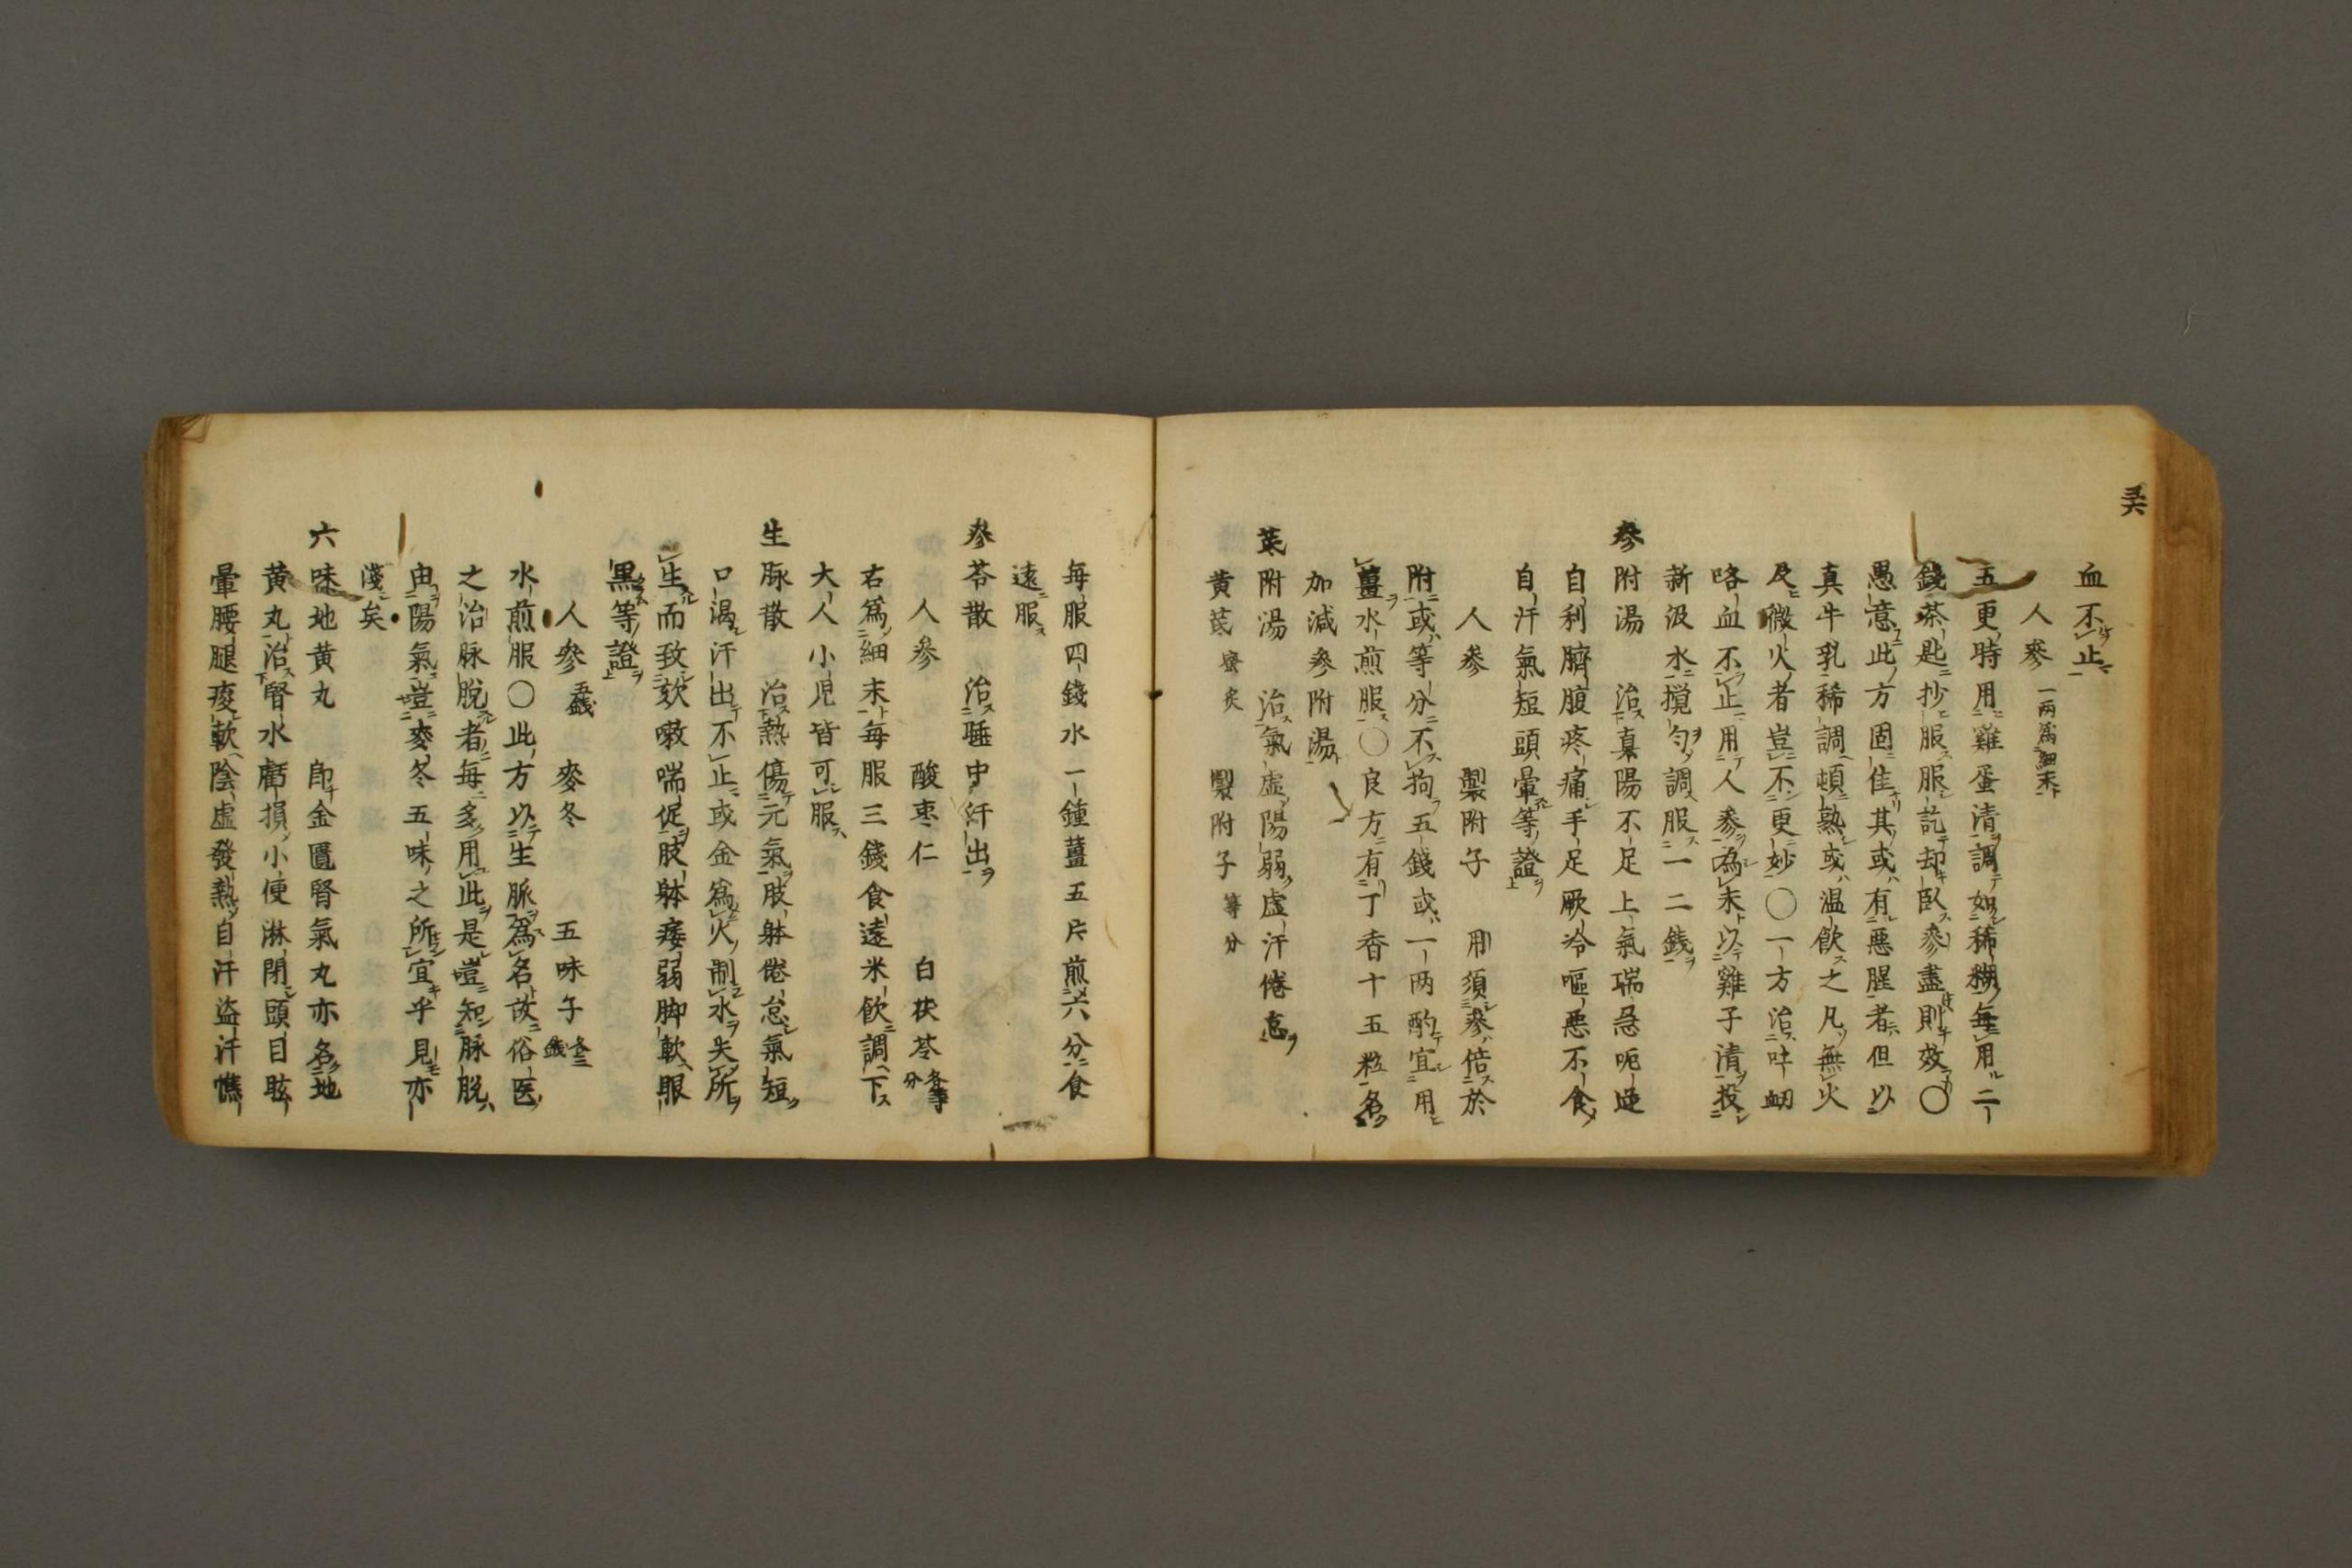 血不止
人參 一兩爲細末
五更時用雞蛋清調如稀糊每用二
錢茶匙抄服服訖却臥參盡則效〇
愚意此方固佳其或有悪腥者但以
真牛乳稀調頓熟或温飲之凡無火
及微火者豈不更妙〇一方治吐衂
咯血不止用人參為末以雞子清投
新汲水攪勻調服一二錢
參附湯 治真陽不足上氣喘急呃逆
自利臍腹疼痛手足厥冷嘔悪不食
自汗氣短頭暈等證
人參 製附子 用須參倍於
附或等分不拘五錢或一两酌宜用
薑水煎服〇良方有丁香十五粒名
加減參附湯
芪附湯 治氣虚陽弱虚汗倦怠
黄芪 蜜炙 製附子 等分
每服四錢水一鍾薑五片煎六分食
遠服
參苓散 治睡中汗出
人參 酸枣仁 白茯苓 各等分
右爲細末每服三錢食遠米飲調下
大人小児皆可服
生脉散 治熱傷元氣肢躰倦怠氣短
口渴汗出不止或金爲火制水失所
生而致欬嗽喘促肢躰痿弱脚軟眼
黒等證
人參 五錢 麥冬 五味子 各三錢
水煎服〇此方以生脈爲名故俗医
之治脉脱者每多用此是豈知脉脱
由陽氣豈麥冬五味之所宜乎見亦
淺矣
六味地黄丸 即金匱腎氣丸亦名地
黄丸治腎水虧損小便淋閉頭目眩
暈腰腿痠軟陰虚發熱自汗盗汗憔